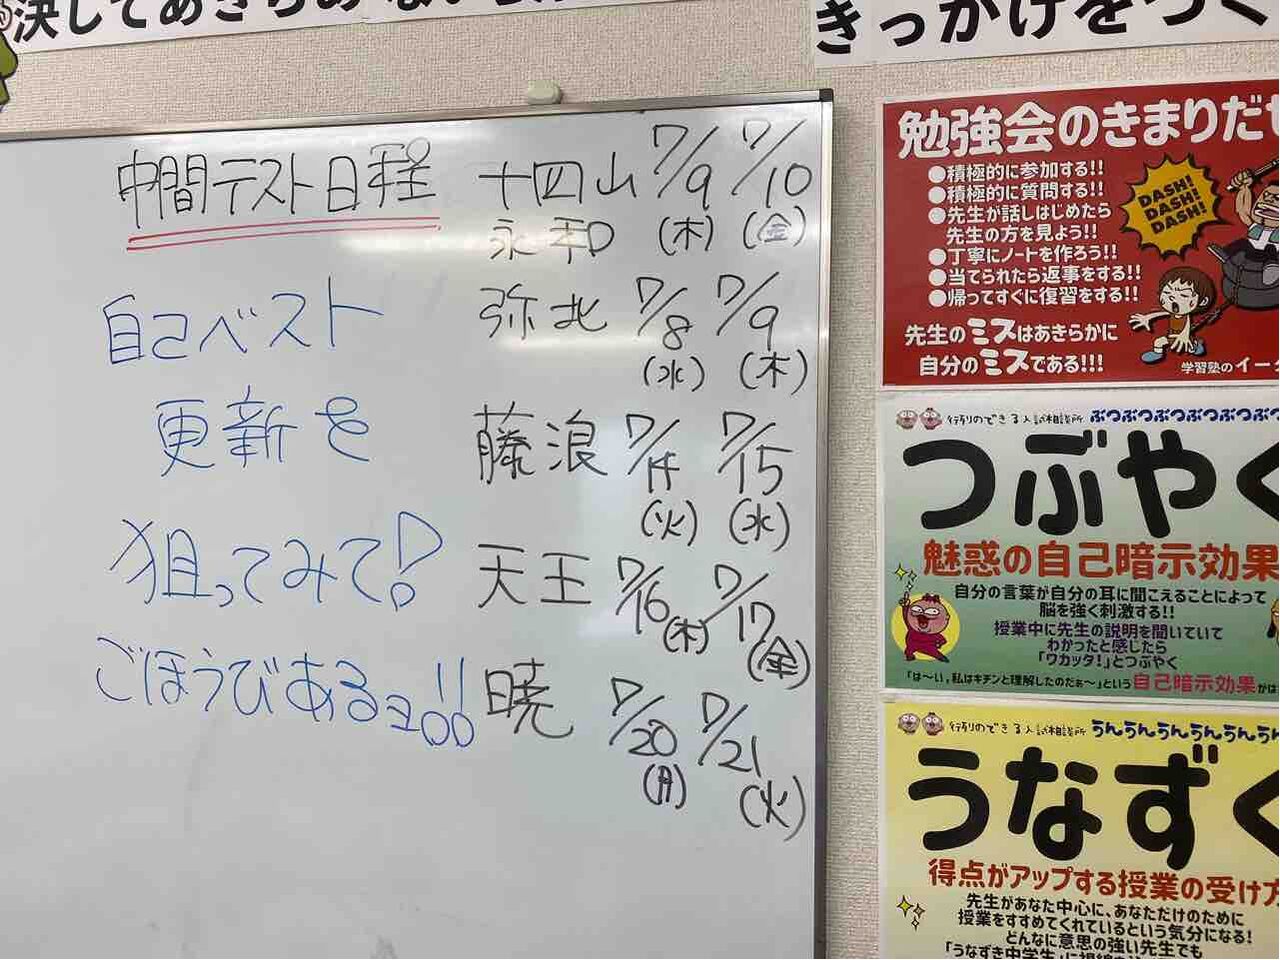 決してあきらめない
きっかけをつく
中間テスト日程
自己ベスト
更新を
狙ってみて!
ごほうびあるヨ!!
十四山 7/9 7/10
永和 (木) (金)
弥北 7/8 7/9
(水) (木)
藤浪 7/14 7/15
(火) (水)
天王 7/16 7/17
(木) (金)
暁 7/20 7/21
(月) (火)
勉強会のきまりだ
●積極的に参加する!!
●積極的に質問する!!
●先生が話しはじめたら
先生の方を見よう!!
●丁寧にノートを作ろう!!
●当てられたら返事をする!!
●帰ってすぐに復習をする!!
DASH!
DASH!
DASH!
先生のミスはあきらかに
自分のミスである!!!
学習塾のイー
行列のできる入試相談所 ぶつぶつぶつぶつぶつぶつ
つぶやく
魅惑の自己暗示効果
自分の言葉が自分の耳に聞こえることによって
脳を強く刺激する!!
授業中に先生の説明を聞いていて
わかったと感じたら
「ワカッタ!」とつぶやく
「は〜い,私はキチンと理解したのだぁ〜」という自己暗示効果が
行列のできる入試相談所 うんうんうんうんうんうん
うなずく
得点がアップする授業の受け方
先生があなた中心に、あなただけのために
授業をすすめてくれているという気分になる!
どんなに意思の強い先生でも
「うなずき中学生」に視線を